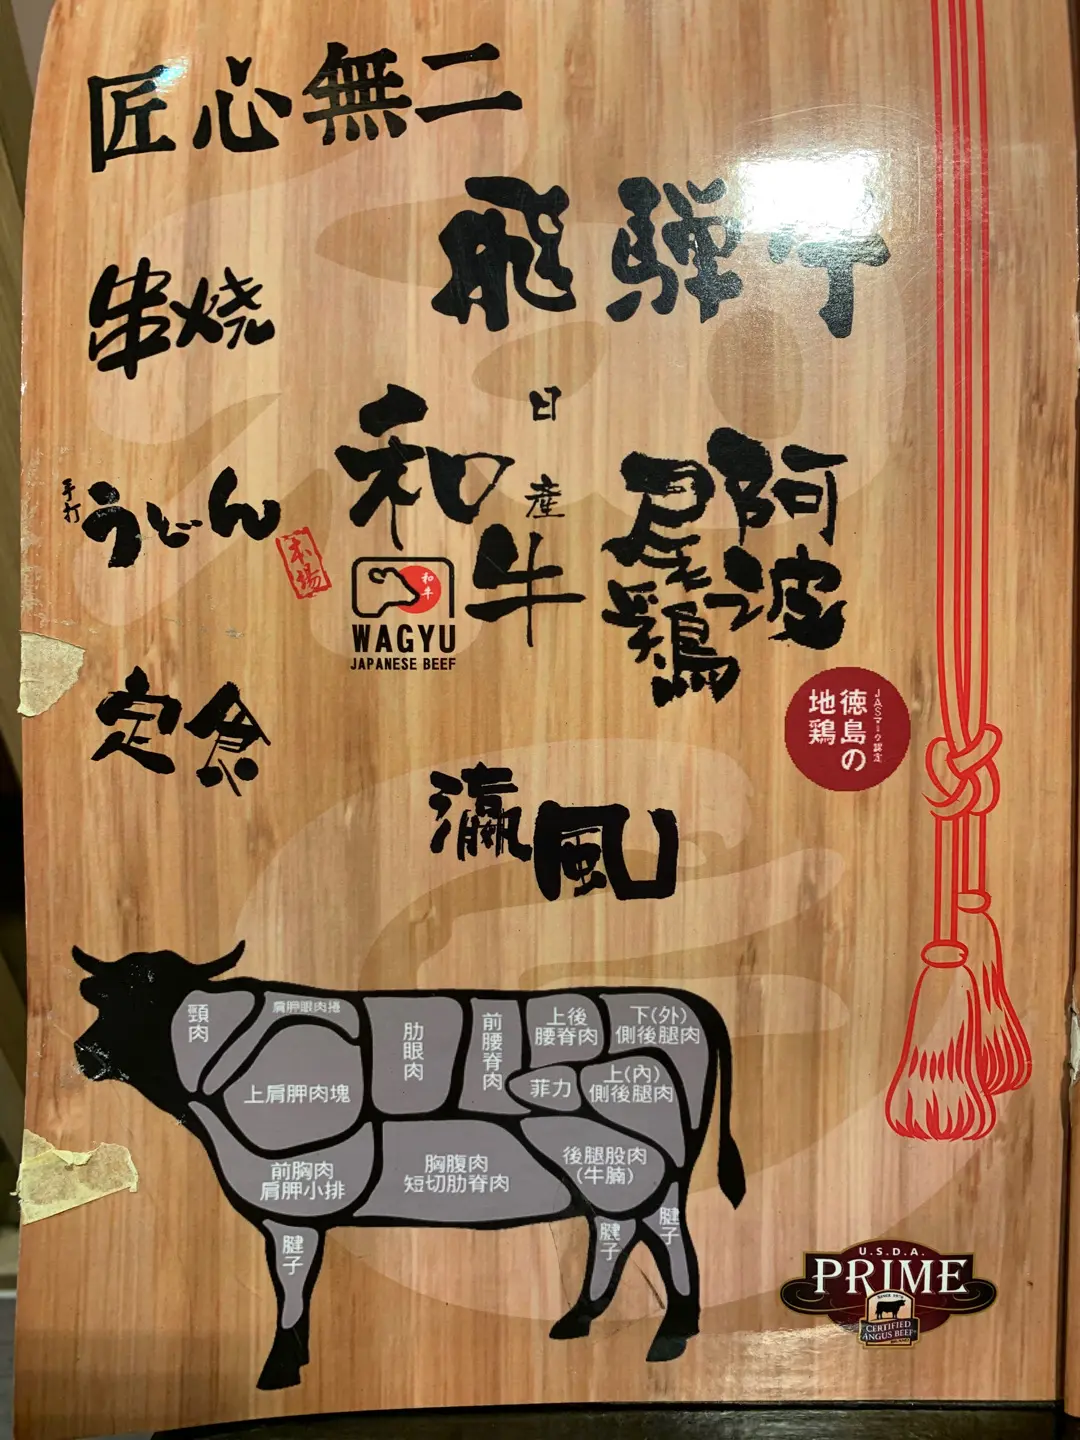 匠心無二
飛騨牛
串燒
日產
和牛
和牛
WAGYU
JAPANESE BEEF
阿波
尾鶏
手打
うどん
本場
定食
JASマーク認定
徳島の
地鶏
瀛風
頸肉
肩胛眼肉捲
上肩胛肉塊
肋眼肉
前腰脊肉
上後
腰脊肉
下(外)
側後腿肉
菲力
上(內)
側後腿肉
前胸肉
肩胛小排
胸腹肉
短切肋脊肉
後腿股肉
(牛腩)
腱子
腱子
腱子
U.S.D.A.
PRIME
SINCE 1978
CERTIFIED
ANGUS BEEF